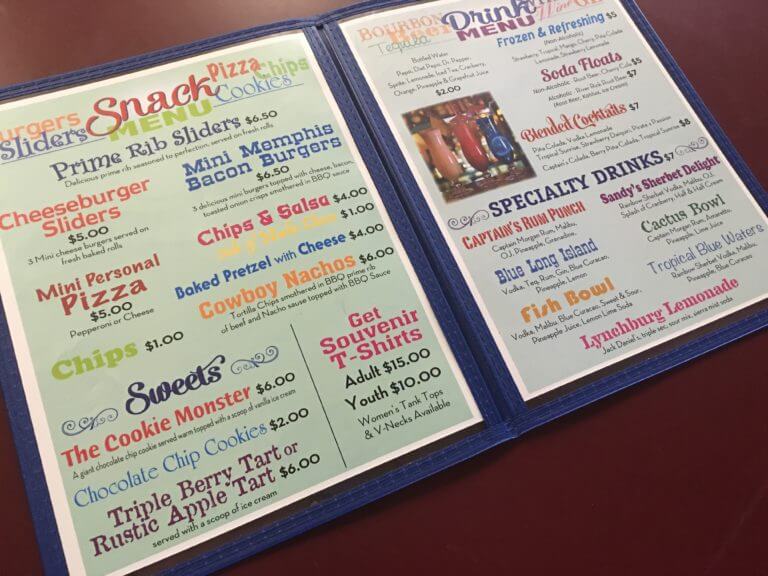 Burgers
Pizza
Chips
Sliders
Snack
MENU
Cookies
Prime Rib Sliders $6.50
Delicious prime rib seasoned to perfection, served on fresh rolls
Cheeseburger
Sliders
$5.00
3 Mini cheese burgers served on
fresh baked rolls
Mini Memphis
Bacon Burgers
$6.50
3 delicious mini burgers topped with cheese, bacon,
toasted onion crisps smothered in BBQ sauce
Mini Personal
Pizza
$5.00
Pepperoni or Cheese
Chips & Salsa $4.00
$1.00
Baked Pretzel with Cheese $4.00
Cowboy Nachos $6.00
Tortilla Chips smothered in BBQ prime rib
of beef and Nacho sauce topped with BBQ Sauce
Chips $1.00
Sweets
The Cookie Monster $6.00
A giant chocolate chip cookie served warm topped with a scoop of vanilla ice cream
Chocolate Chip Cookies $2.00
Triple Berry Tart or
Rustic Apple Tart $6.00
served with a scoop of ice cream
Get
Souvenir
T-Shirts
Adult $15.00
Youth $10.00
Women's Tank Tops
& V-Necks Available
BOURBON
Beer
Tequila
Drink
MENU
Wine
Bottled Water
Pepsi, Diet Pepsi, Dr. Pepper,
Sprite, Lemonade, Iced Tea, Cranberry,
Orange, Pineapple & Grapefruit Juice
$2.00
Frozen & Refreshing $5
(Non-Alcoholic)
Strawberry, Tropical Mango, Cherry, Piña Colada
Lemonade, Strawberry Lemonade
Soda Floats
Non-Alcoholic - Root Beer, Cherry Cola $5
Alcoholic - River Rick Root Beer $7
(Root Beer, Kahlua, Ice Cream)
Blended Cocktails $7
Piña Colada, Vodka Lemonade
Tropical Sunrise, Strawberry Daiquiri, Pirate's Passion
Captain's Colada, Berry Piña Colada, Tropical Sunrise $8
SPECIALTY DRINKS $7
CAPTAIN'S RUM PUNCH
Captain Morgan Rum, Malibu,
O.J., Pineapple, Grenadine
Sandy's Sherbet Delight
Rainbow Sherbet Vodka, Malibu, O.J.
Splash of Cranberry, Half & Half Cream
Blue Long Island
Vodka, Teq, Rum, Gin, Blue Curacao,
Pineapple, Lemon
Cactus Bowl
Captain Morgan Rum, Amaretto,
Pineapple, Lime Juice
Fish Bowl
Vodka, Malibu, Blue Curacao, Sweet & Sour,
Pineapple Juice, Lemon Lime Soda
Tropical Blue Waters
Rainbow Sherbet Vodka, Malibu,
Pineapple, Blue Curacao
Lynchburg Lemonade
Jack Daniel's, triple sec, sour mix, sierra mist soda